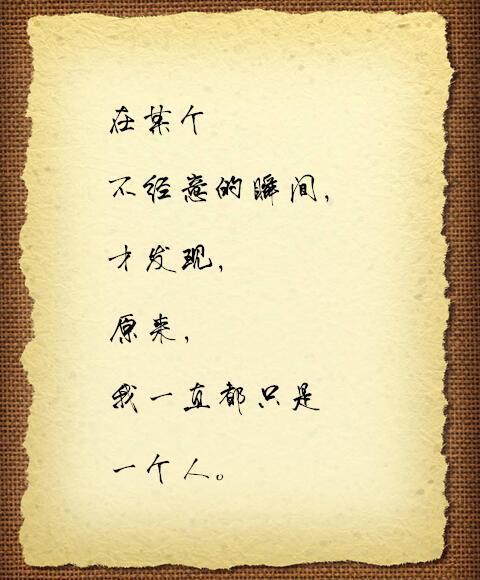 在某个
不经意的瞬间，
才发现，
原来，
我一直都只是
一个人。